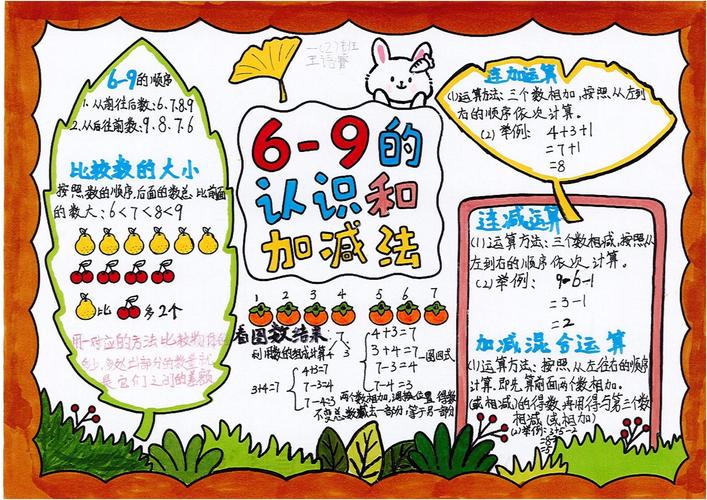 一(2)班
6-9的顺序
1.从前往后数:6.7.8.9
2.从后往前数:9.8.7.6
比较数的大小
按照数的顺序,后面的数总比前面
的数大:6<7<8<9
比 多2个
用一一对应的方法比较物
6-9的
认识和
加减法
1 2 3 4 5 6 7
看图数结果:
利用数的组成计算
4 3
3+4=7
4+3=7
7-3=4
7-4=3
4+3=7
3+4=7
7-3=4
7-4=3
一图四式
两个数相加,调换位置,得数
不变总数减去一部分,等于另一部分
连加运算
(1)运算方法:三个数相加,按照从左到
右的顺序依次计算。
(2)举例: 4+3+1
=7+1
=8
连减运算
(1)运算方法:三个数相减,按照从
左到右的顺序依次计算。
(2)举例: 9-6-1
=3-1
=2
加减混合运算
(1)运算方法:按照从左往右的顺序
计算,即先算前面两个数相加。
(或相减)的得数,再用得与第三个数
相减(或相加)
(2)举例:3+5-2